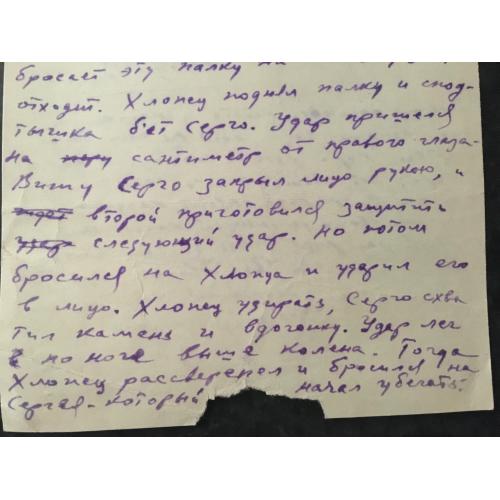 бросает эту палку на
отходит. Хлопец поднял палку и спод-
тышка бьет Серго. Удар пришелся
на сантиметр от правого глаза-
Вижу Серго закрыл лицо рукою, и
второй приготовился защитить
следующий удар. Но потом
бросился на Хлопца и ударил его
в лицо. Хлопец удирать, Серго схва
тил камень и вдогонку. Удар лег
по ноге выше колена. Тогда
Хлопец рассверепел и бросился на
Сергея - который начал убегать.